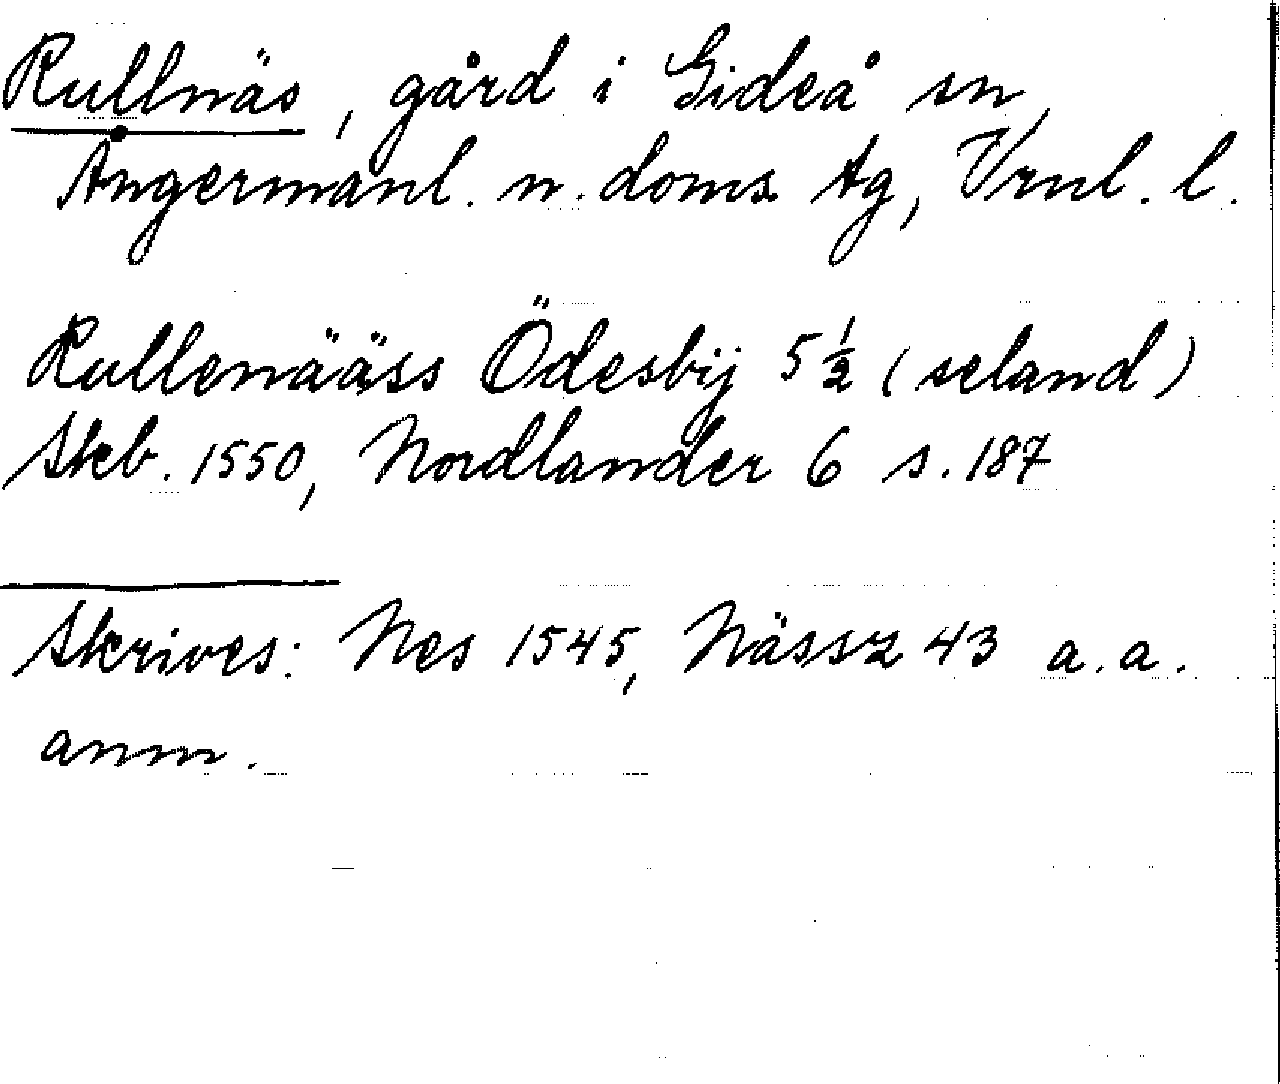 Rullnäs, gård i Gideå sn,
Ångermanl. n. doms. tg, Vrnl. l.
Rullenääss Ödesbij 5 1/2 (seland)
Skb. 1550, Nordlander 6 s. 187
Skrives: Nes 1545, Nässz 43 a. a.
anm.